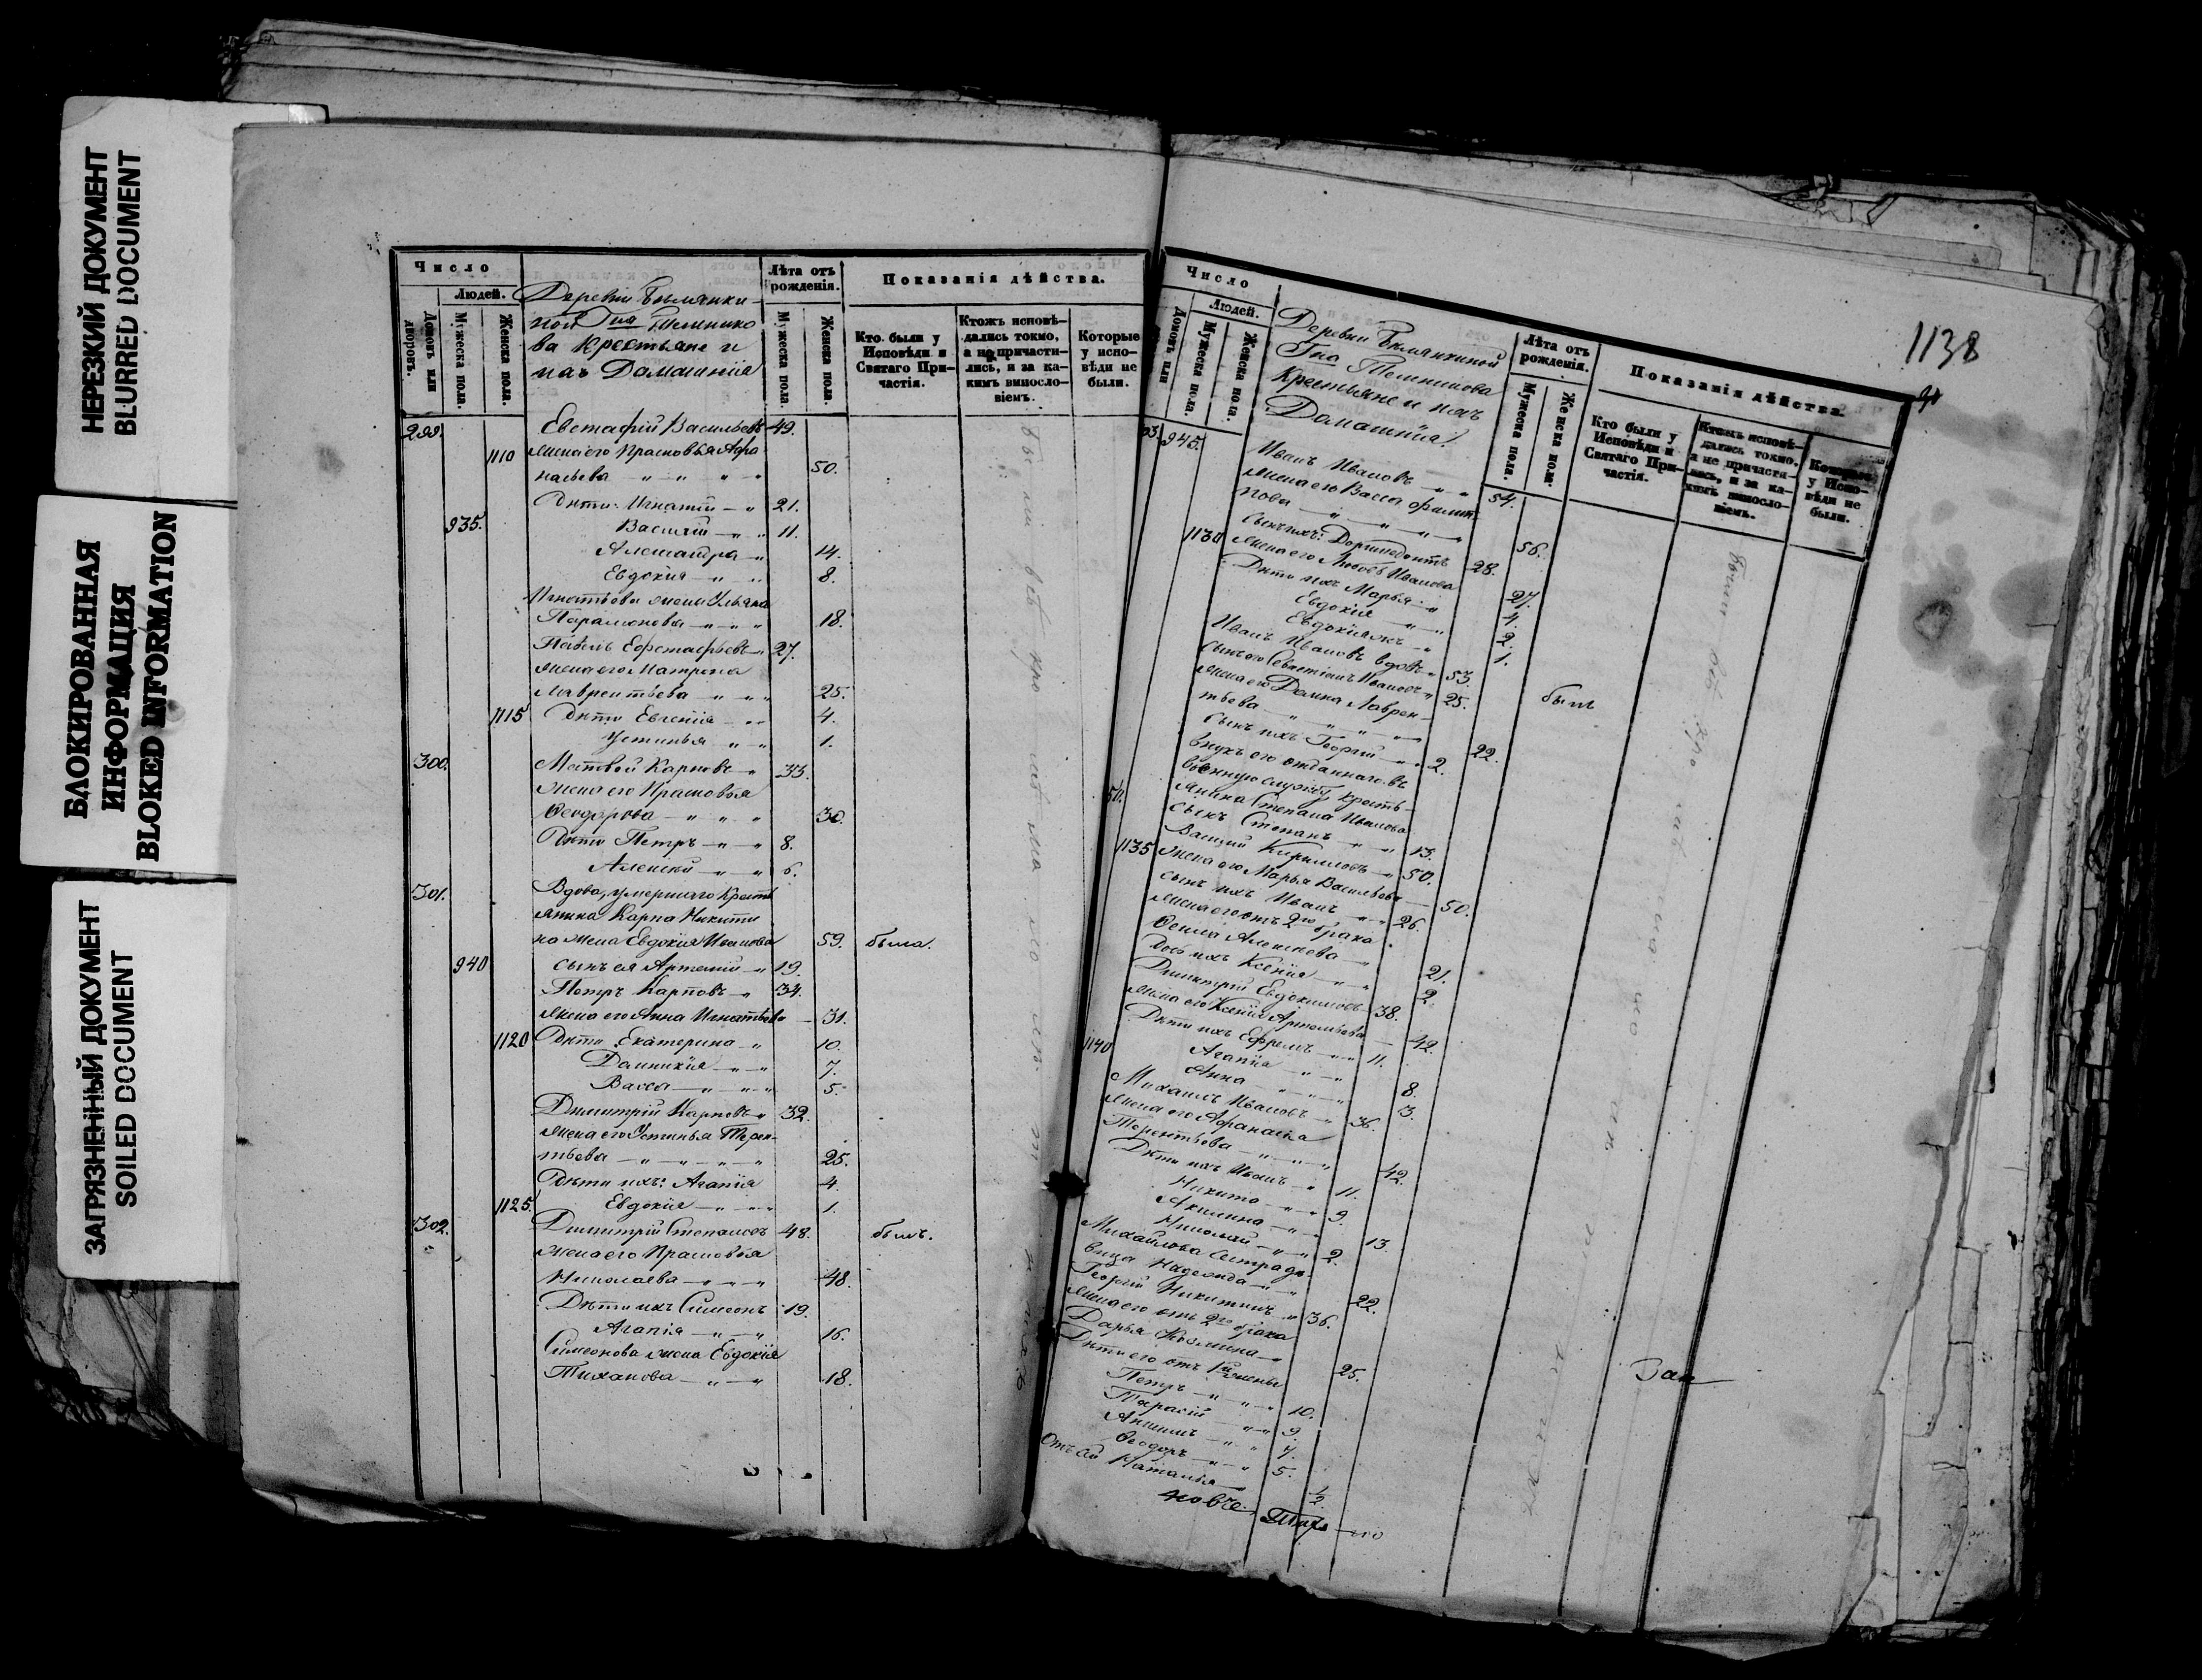 НЕРЕЗКИЙ ДОКУМЕНТ
BLURRED DOCUMENT
БЛОКИРОВАННАЯ
ИНФОРМАЦИЯ
BLOKED INFORMATION
ЗАГРЯЗНЕННЫЙ ДОКУМЕНТ
SOILED DOCUMENT
Число
Людей.
Домовъ или дворовъ.
Мужеска пола.
Женска пола.
Деревни
Гна
ва крестьяне и
ихъ Домашнія
Лѣта отъ рожденія.
Мужеска пола.
Женска пола.
Показанія дѣйства.
Кто были у Исповѣди и Святаго Причастія.
Ктожъ исповѣдались токмо, а не причастились, и за какимъ винословіемъ.
Которые у исповѣди не были.
299. Евстафій Васильевъ 49.
1110 Жена его Прасковья Афа
насьева 50.
Дѣти: Игнатій 21.
935. Василій 11.
Александра 14.
Евдокія 8.
Игнатьева жена Ульяна
Парамонова 18.
Павелъ Евстафьевъ 27.
Жена его Матрена
Лаврентьева 25.
1115 Дѣти Евгенія 4.
Устинья 1.
300. Матвей Карповъ 33.
Жена его Прасковья
Ѳеодорова 30.
Дѣти Петръ 8.
Алексей 6.
301. Вдова, умершаго Кресть
янина Карпа Никити
на жена Евдокія Иванова 59. была.
940 Сынъ ея Артемій 19.
Петръ Карповъ 34.
Жена его Анна Игнатьева 31.
1120 Дѣти Екатерина 10.
Домникія 7.
Васса 5.
Димитрій Карповъ 32.
Жена его Устинья Терен-
тьева 25.
Дѣти ихъ: Агапія 4.
1125. Евдокія 1.
302. Димитрій Степановъ 48. былъ.
Жена его Прасковья
Николаева 48.
Дѣти ихъ Симеонъ 19.
Агапія 16.
Симеонова жена Евдокія
Тиханова 18.
1138
Число
Людей.
Домовъ или
Мужеска пола.
Женска пола.
Деревни
Гна
Крестьяне и ихъ
Домашнія
Лѣта отъ рожденія.
Мужеска пола.
Женска пола.
Показанія дѣйства.
Кто были у Исповѣди и Святаго Причастія.
Ктожъ исповѣдались токмо, а не причастились, и за какимъ винословіемъ.
Которые у Исповѣди не были.
03. 945. Иванъ Ивановъ 54.
Жена его Васса Филип
пова 56.
Сынъ ихъ: Дормидонтъ 28.
1130 Жена его Любовь Иванова 27.
Дѣти ихъ Марья 4.
Евдокія 2.
Евдокія жъ 1.
Иванъ Ивановъ вдовъ 53.
Сынъ его Ивановъ 25. былъ
Жена его Домна Лаврен-
тьева 22.
Сынъ ихъ Георгій 2.
Внукъ его отданнаго въ
военную службу кресть-
50. янина Степана Иванова
сынъ Степанъ 13.
Василій Кирилловъ 50.
1135 Жена его Марья Васильева 50.
Сынъ ихъ Иванъ 26.
Жена его отъ 2го брака
Ѳекла Алексеева 21.
Дочь ихъ Ксенія 2.
Димитрій Евдокимовъ 38.
Жена его Ксенія Артемьева 42.
Дѣти ихъ Ефремъ 11.
1140 Агапія 8.
Анна 3.
Михаилъ Ивановъ 36.
Жена его Афанасія
Терентьева 42.
Дѣти ихъ Иванъ 11.
Никита 9.
Акилина 13.
Николай 2.
Михайлова
вица Надежда 22.
Георгій Никитинъ 36.
Жена его отъ 2го брака
Дарья Козмина 25.
Дѣти его отъ 1й жены
Петръ 10.
Тарасій 9.
Анисимъ 7.
Ѳеодоръ 5.
Отъ сей Наталья 1/2